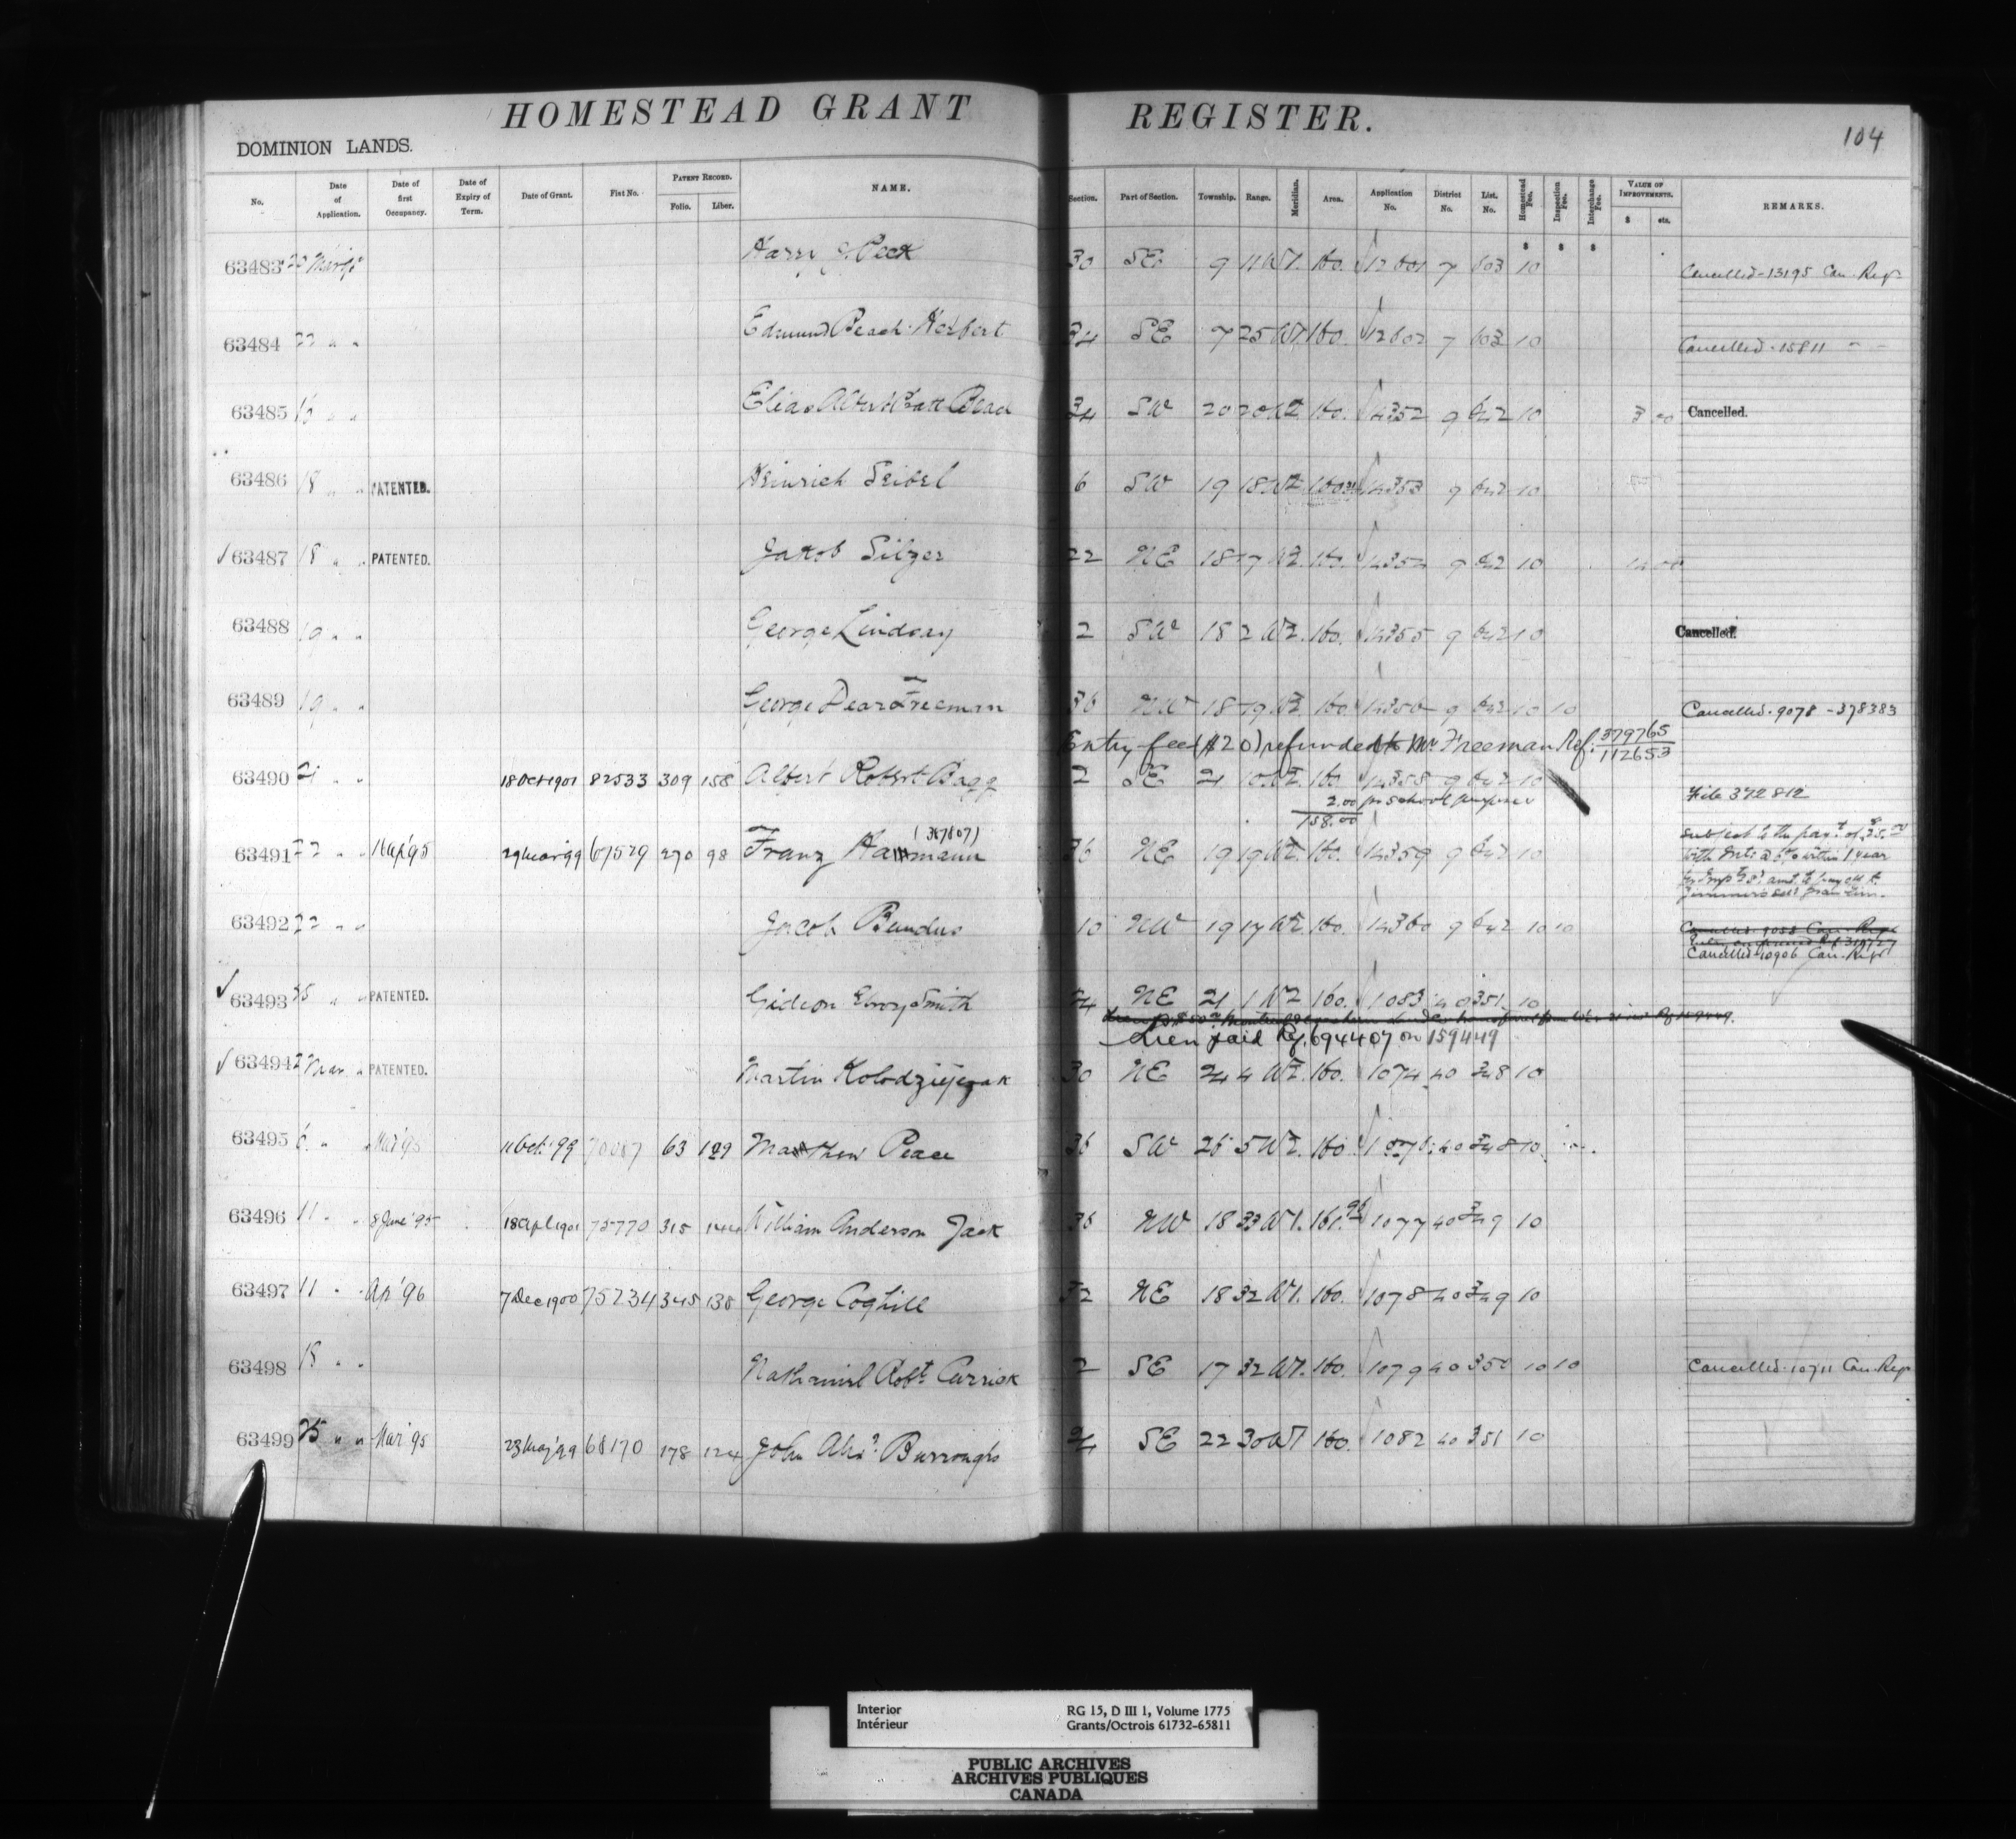 HOMESTEAD GRANT REGISTER.
104
DOMINION LANDS.
No. Date of Application. Date of first Occupancy. Date of Expiry of Term. Date of Grant. Fiat No. PATENT RECORD. Folio. Liber. NAME. Section. Part of Section. Township. Range. Meridian. Area. Application No. District No. List. No. Homestead Fee. Inspection Fee. Interchange Fee. VALUE OF IMPROVEMENTS. $ cts. REMARKS.
$ $ $
63483 Harry J. Peck 30 SE 9 11 W1. 160. 12601 7 603 10 Cancelled-13195 Can. Regr
63484 22 " " Edmund Beach Herbert 34 SE 7 25 W1. 160. 12602 7 603 10 Cancelled-15811 " "
63485 " " Elias Albert 34 SW 20 20 W2. 160. 14352 9 642 10 Cancelled.
63486 18 " " PATENTED. Heinrich Seibel 6 SW 19 18 W2 14353 9 642 10
63487 18 " " PATENTED. Jakob Silzer 22 NE 18 17 W2. 160. 14354 9 642 10
63488 19 " " George Lindsay 2 SW 18 2 W2. 160. 14355 9 642 10 Cancelled.
63489 19 " " George Dear Freeman 36 NW 18 19 W2 160. 14356 9 642 10 10 Cancelled-9078-378383
Entry fee ($20) refunded to Mr Freeman Ref. 379765
112653
63490 21 " " 18 Oct 1901 82533 309 158 Albert Robert Bagg 2 SE 21 10 W2. 160 14358 9 642 10 File 372812
2.00 for school purposes
158.00
(367807)
63491 22 " " 1 Apl '95 29 Mar '99 67529 270 98 Franz Hammann 36 NE 19 19 W2. 160. 14359 9 642 10 subject to the payt of $25.00
with Int: @ 6% within 1 year
63492 22 " " Jacob Bandus 10 NW 19 17 W2. 160. 14360 9 642 10 10
Cancelled-10906 Can. Regr
63493 25 " " PATENTED. Gideon Smith 24 NE 21 1 W2 160. 1083 40 351. 10
Lien paid Rf. 694407 on 159449
63494 2 Mar. " PATENTED. Martin Kolodziejczak 30 NE 24 4 W2. 160. 1074 40 348 10
63495 6 " " Mar '95 11 Oct. '99 70087 63 129 Matthew Peace 36 SW 26 5 W2. 160. 1076 40 348 10
63496 11 " " 8 June '95 18 Apl 1901 75770 315 144 William Anderson Jack 36 NW 18 33 W1. 161.96 1077 40 349 10
63497 11 " " Ap '96 7 Dec 1900 75234 345 138 George Coghill 32 NE 18 32 W1. 160. 1078 40 349 10
63498 18 " " Nathaniel Robt. Currick 2 SE 17 32 W1. 160. 1079 40 350 10 10 Cancelled-10711 Can. Regr
63499 25 " " Mar '95 23 May '99 68170 178 124 John Alexr. Burroughs 24 SE 22 30 W1 160. 1082 40 351 10
Interior
Intérieur
RG 15, D III 1, Volume 1775
Grants/Octrois 61732-65811
PUBLIC ARCHIVES
ARCHIVES PUBLIQUES
CANADA